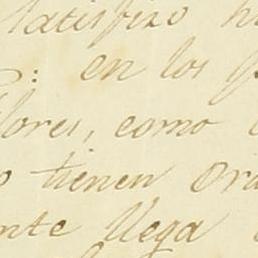 satisfizo
: en los
lores, como
tienen
nte llega